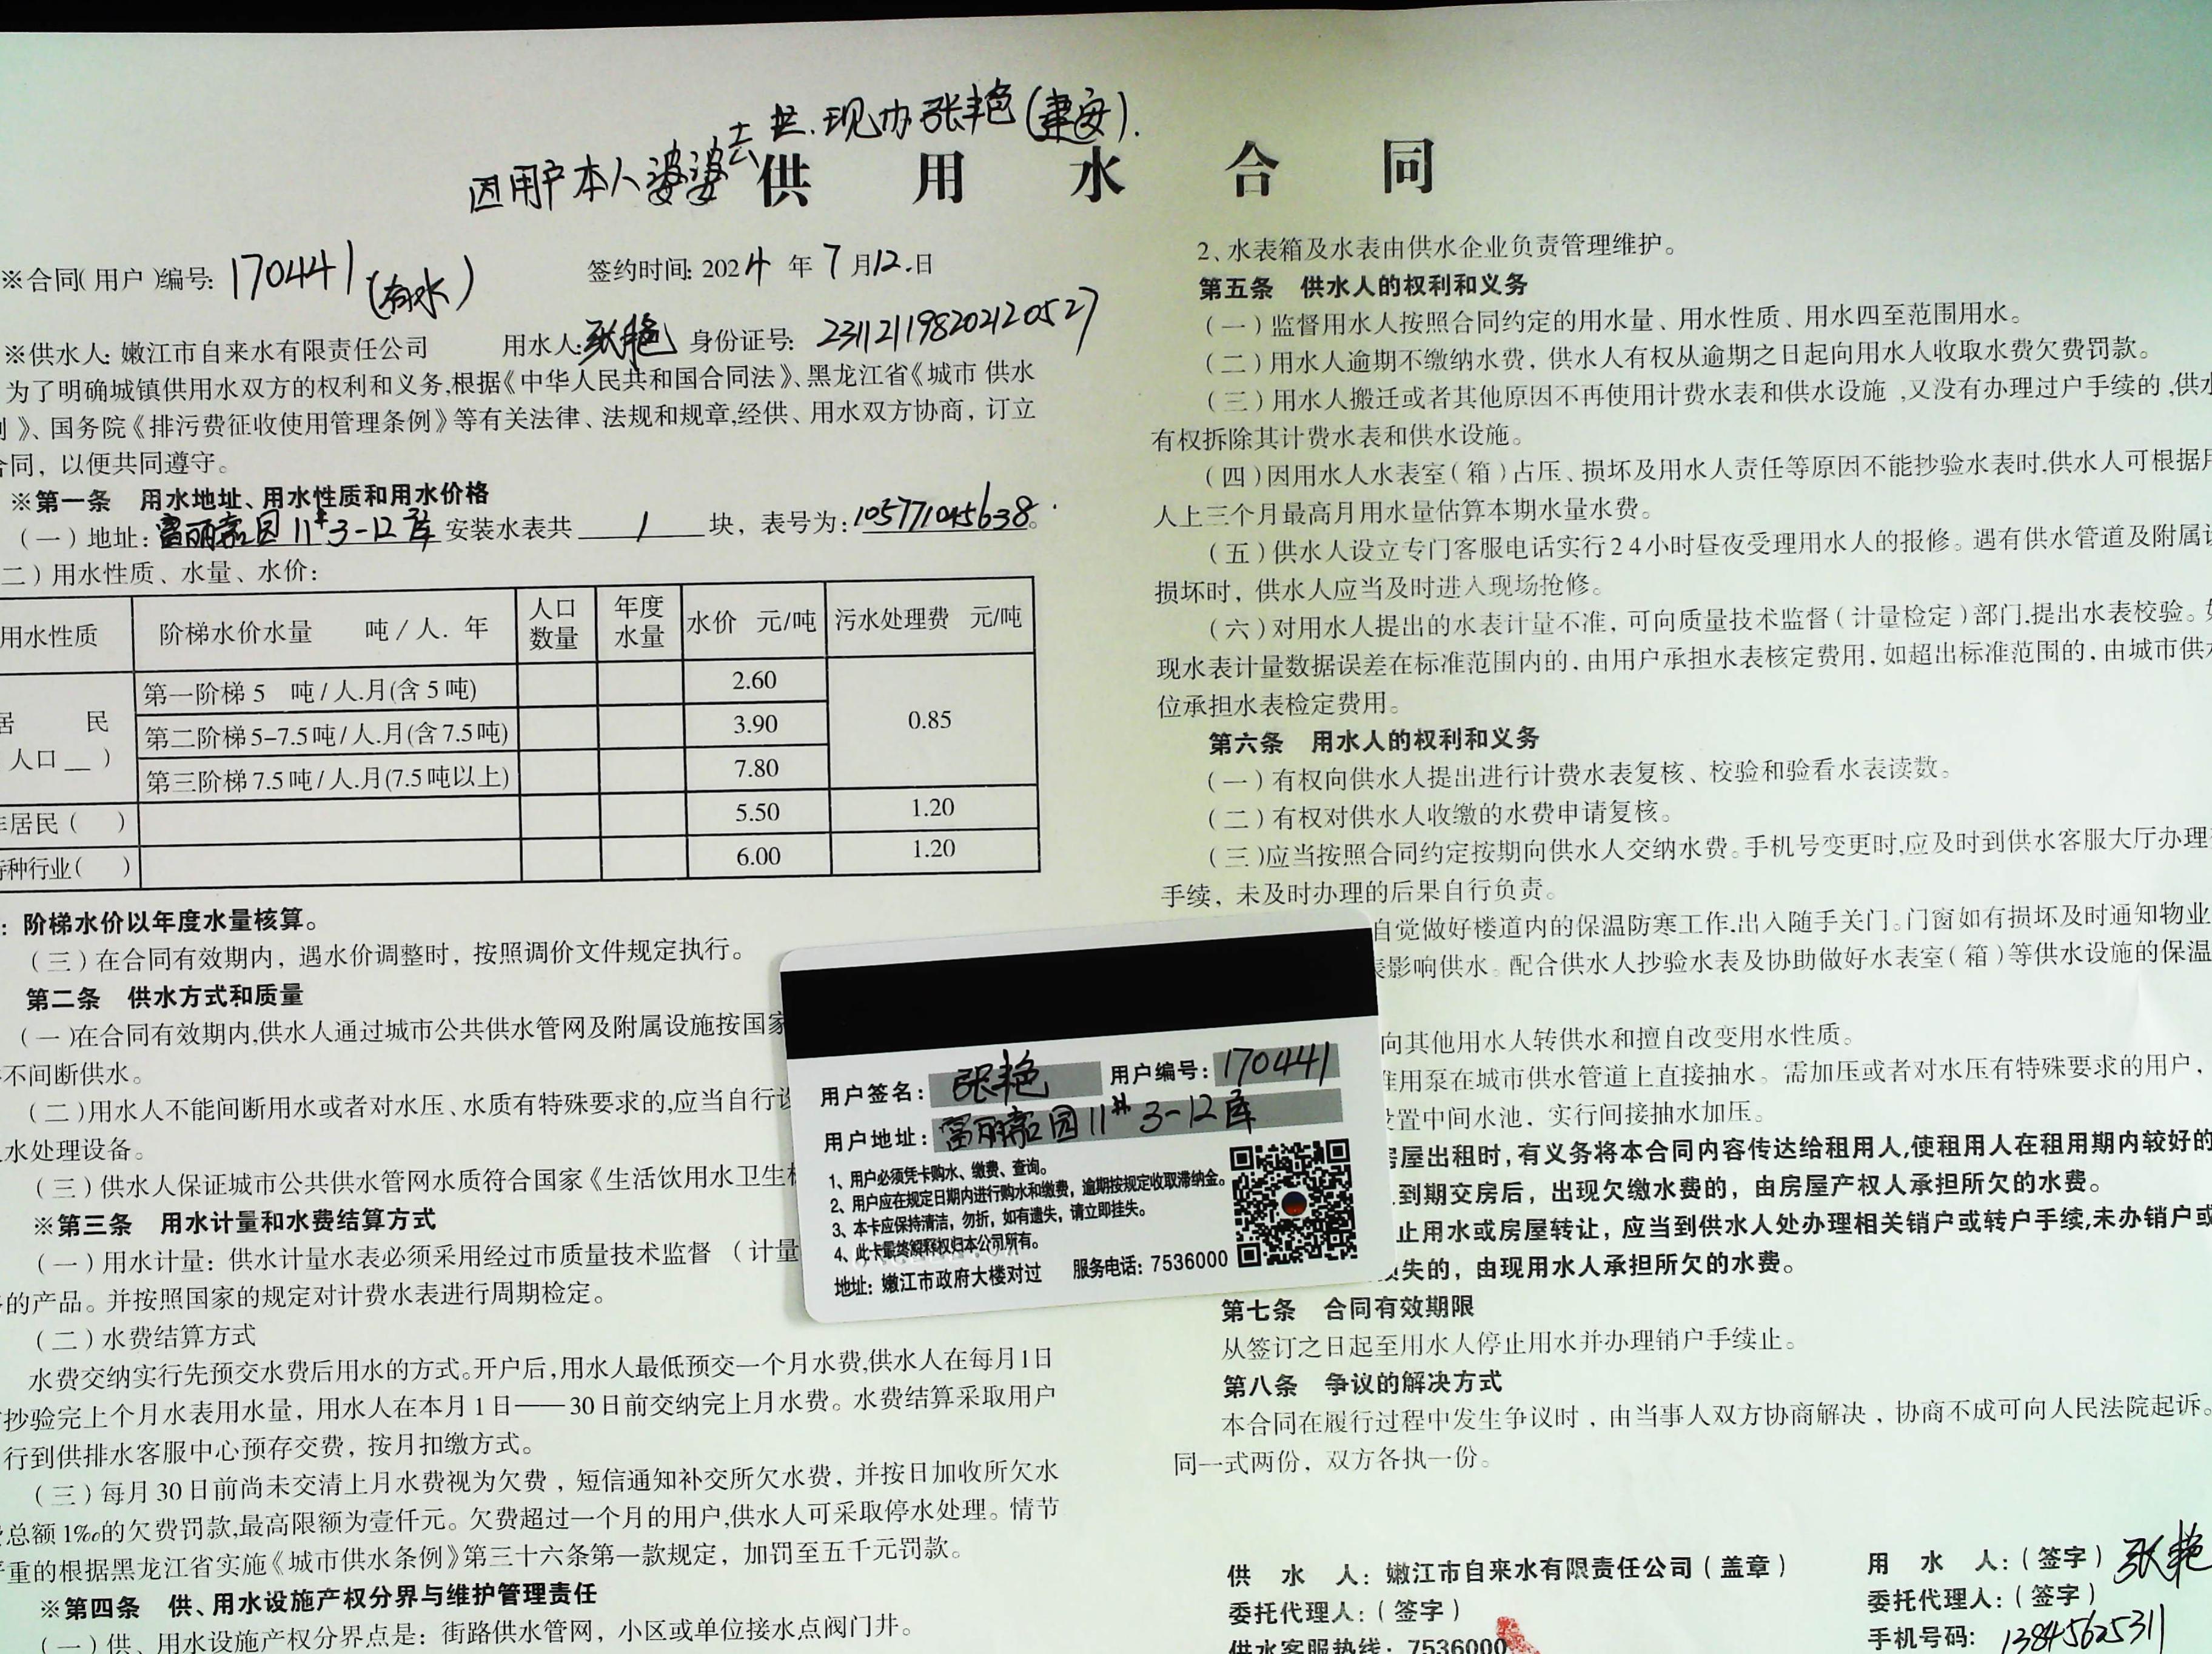 因用户本人婆婆去世.现办张艳(建安).
供用水合同
※合同(用户)编号:170441(有水)
签约时间:2024年7月12.日
※供水人:嫩江市自来水有限责任公司 用水人:张艳 身份证号:231121198202120527
为了明确城镇供用水双方的权利和义务,根据《中华人民共和国合同法》、黑龙江省《城市 供水
》、国务院《排污费征收使用管理条例》等有关法律、法规和规章,经供、用水双方协商，订立
合同，以便共同遵守。
※第一条 用水地址、用水性质和用水价格
(一)地址:富丽嘉园11#3-12库 安装水表共 1 块，表号为:105771045638。
二)用水性质、水量、水价:
用水性质 阶梯水价水量 吨/人. 年 人口数量 年度水量 水价 元/吨 污水处理费 元/吨
居 民 第一阶梯 5 吨/人.月(含 5 吨) 2.60 0.85
人口__) 第二阶梯 5-7.5吨/人.月(含 7.5吨) 3.90
第三阶梯 7.5 吨/人.月(7.5 吨以上) 7.80
居民( ) 5.50 1.20
种行业( ) 6.00 1.20
:阶梯水价以年度水量核算。
(三)在合同有效期内，遇水价调整时，按照调价文件规定执行。
第二条 供水方式和质量
(一)在合同有效期内,供水人通过城市公共供水管网及附属设施按国家
不间断供水。
(二)用水人不能间断用水或者对水压、水质有特殊要求的,应当自行设
水处理设备。
(三)供水人保证城市公共供水管网水质符合国家《生活饮用水卫生标
※第三条 用水计量和水费结算方式
(一)用水计量:供水计量水表必须采用经过市质量技术监督 (计量
的产品。并按照国家的规定对计费水表进行周期检定。
(二)水费结算方式
水费交纳实行先预交水费后用水的方式。开户后,用水人最低预交一个月水费,供水人在每月1日
抄验完上个月水表用水量，用水人在本月 1 日——30 日前交纳完上月水费。水费结算采取用户
行到供排水客服中心预存交费，按月扣缴方式。
(三)每月 30 日前尚未交清上月水费视为欠费，短信通知补交所欠水费，并按日加收所欠水
总额 1‰的欠费罚款,最高限额为壹仟元。欠费超过一个月的用户,供水人可采取停水处理。情节
严重的根据黑龙江省实施《城市供水条例》第三十六条第一款规定，加罚至五千元罚款。
※第四条 供、用水设施产权分界与维护管理责任
(一)供、用水设施产权分界点是:街路供水管网，小区或单位接水点阀门井。
2、水表箱及水表由供水企业负责管理维护。
第五条 供水人的权利和义务
(一)监督用水人按照合同约定的用水量、用水性质、用水四至范围用水。
(二)用水人逾期不缴纳水费，供水人有权从逾期之日起向用水人收取水费欠费罚款。
(三)用水人搬迁或者其他原因不再使用计费水表和供水设施,又没有办理过户手续的,供水
有权拆除其计费水表和供水设施。
(四)因用水人水表室(箱)占压、损坏及用水人责任等原因不能抄验水表时,供水人可根据用
人上三个月最高月用水量估算本期水量水费。
(五)供水人设立专门客服电话实行24小时昼夜受理用水人的报修。遇有供水管道及附属设
损坏时，供水人应当及时进入现场抢修。
(六)对用水人提出的水表计量不准，可向质量技术监督(计量检定)部门.提出水表校验。如
现水表计量数据误差在标准范围内的，由用户承担水表核定费用，如超出标准范围的，由城市供水
位承担水表检定费用。
第六条 用水人的权利和义务
(一)有权向供水人提出进行计费水表复核、校验和验看水表读数。
(二)有权对供水人收缴的水费申请复核。
(三)应当按照合同约定按期向供水人交纳水费。手机号变更时,应及时到供水客服大厅办理
手续，未及时办理的后果自行负责。
自觉做好楼道内的保温防寒工作.出入随手关门。门窗如有损坏及时通知物业
影响供水。配合供水人抄验水表及协助做好水表室(箱)等供水设施的保温
向其他用水人转供水和擅自改变用水性质。
准用泵在城市供水管道上直接抽水。需加压或者对水压有特殊要求的用户，
设置中间水池，实行间接抽水加压。
房屋出租时,有义务将本合同内容传达给租用人,使租用人在租用期内较好的
到期交房后，出现欠缴水费的，由房屋产权人承担所欠的水费。
止用水或房屋转让，应当到供水人处办理相关销户或转户手续,未办销户或
损失的，由现用水人承担所欠的水费。
第七条 合同有效期限
从签订之日起至用水人停止用水并办理销户手续止。
第八条 争议的解决方式
本合同在履行过程中发生争议时，由当事人双方协商解决，协商不成可向人民法院起诉。
同一式两份，双方各执一份。
供 水 人:嫩江市自来水有限责任公司(盖章)
委托代理人:(签字)
供水客服热线:7536000
用 水 人:(签字)张艳
委托代理人:(签字)
手机号码:13845625311
用户签名:张艳 用户编号:170441
用户地址:富丽嘉园11#3-12库
1、用户必须凭卡购水、缴费、查询。
2、用户应在规定日期内进行购水和缴费，逾期按规定收取滞纳金。
3、本卡应保持清洁，勿折，如有遗失，请立即挂失。
4、此卡最终解释权归本公司所有。
地址:嫩江市政府大楼对过 服务电话:7536000